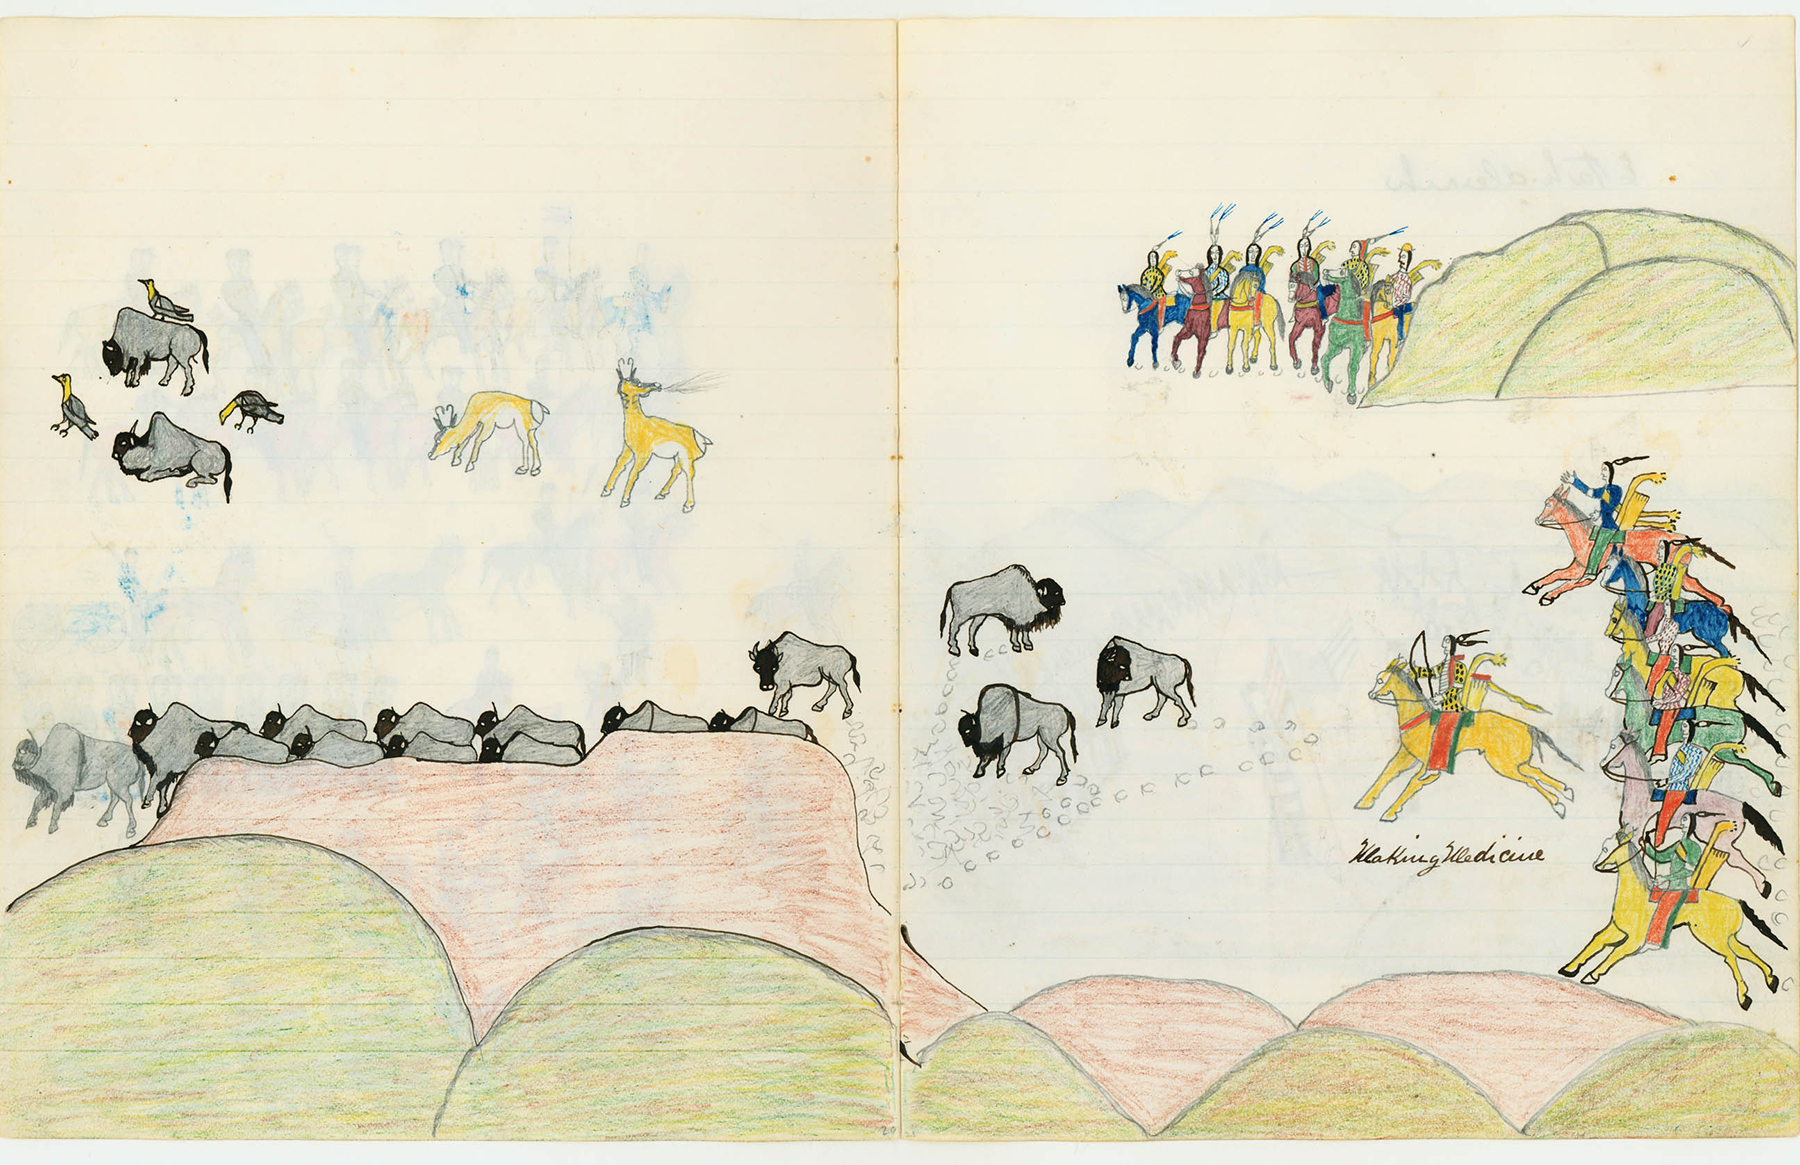 Making Medicine
20